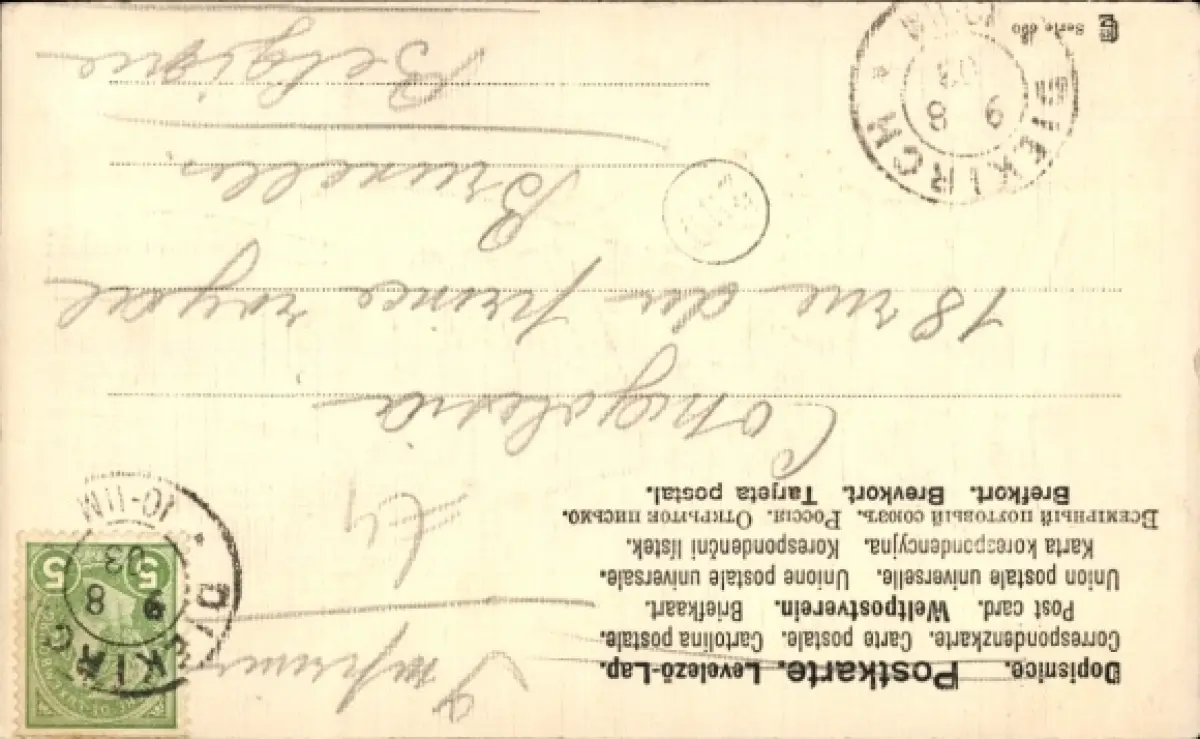 Dopisnice. Postkarte. Levelező-Lap.
Correspondenzkarte. Carte postale. Cartolina postale.
Post card. Weltpostverein. Briefkaart.
Union postale universelle. Unione postale universale.
Karta korespondencyjna. Korespondenční lístek.
Всемірный почтовый союзъ. Россія. Открытое письмо.
Brefkort. Brevkort. Tarjeta postal.
5 5
DIEKIRCH
9 8
03
10-11M
18 rue du prince royal
Bruxelles.
Belgique
DIEKIRCH
9 8
03
Serie 690